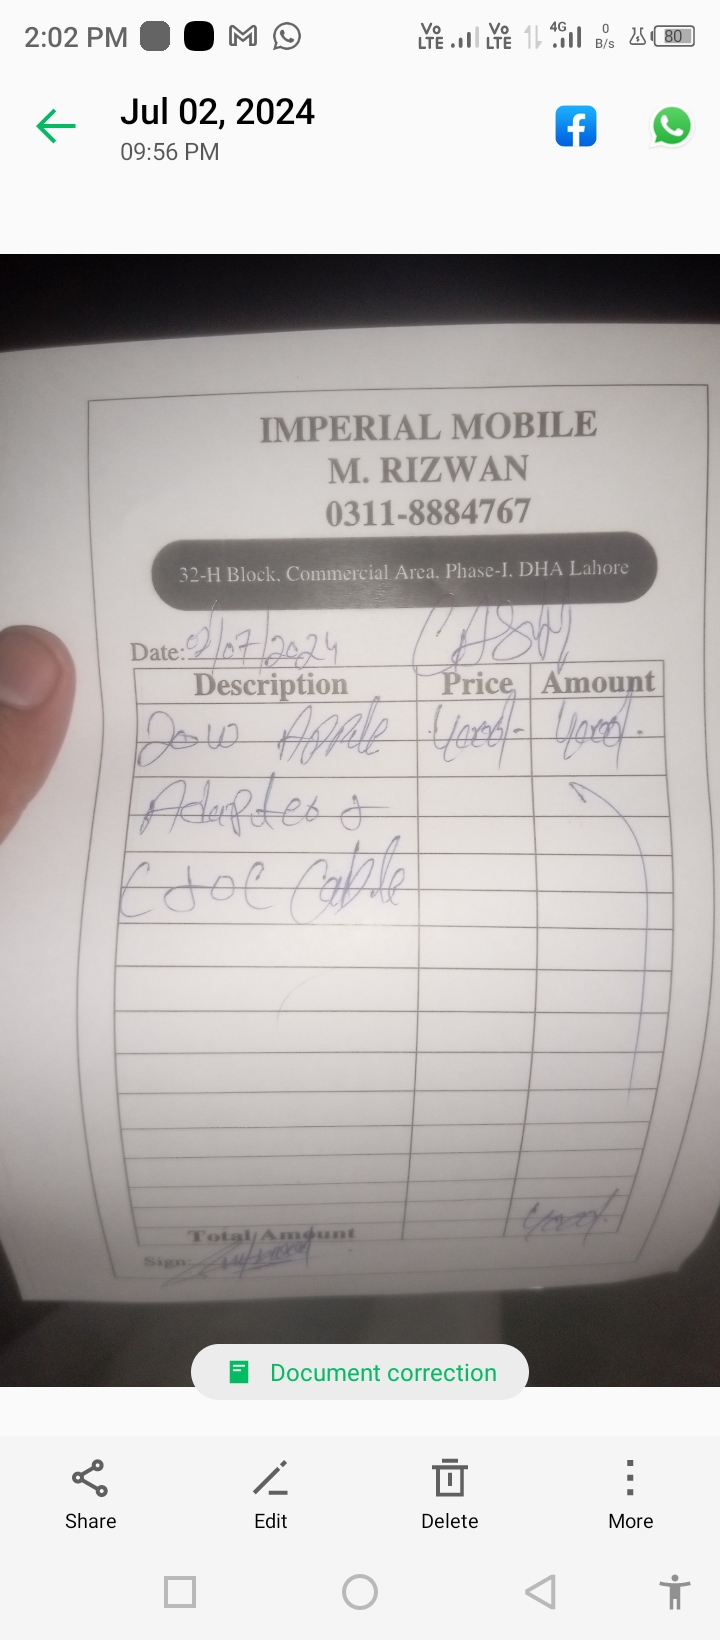 2:02 PM
Vo LTE Vo LTE 4G 0 B/s 80
Jul 02, 2024
09:56 PM
IMPERIAL MOBILE
M. RIZWAN
0311-8884767
32-H Block, Commercial Area, Phase-I, DHA Lahore
Date: /07/2024 CASH
Description Price Amount
20w Apple
Adapter &
C to C Cable
Total Amount
Sign:
Document correction
Share Edit Delete More